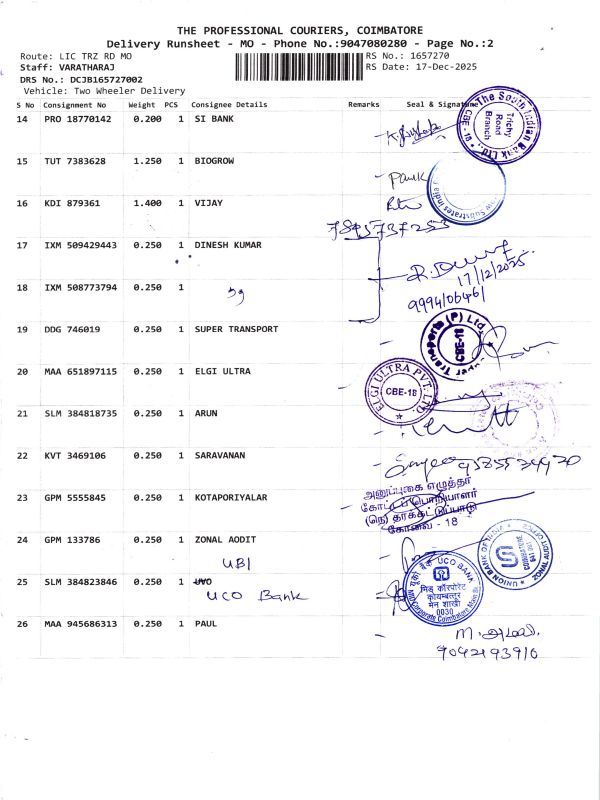 THE PROFESSIONAL COURIERS, COIMBATORE
Delivery Runsheet - MO - Phone No.:9047080280 - Page No.:2
Route: LIC TRZ RD MO
RS No.: 1657270
Staff: VARATHARAJ
RS Date: 17-Dec-2025
DRS No.: DCJB165727002
Vehicle: Two Wheeler Delivery
S No Consignment No Weight PCS Consignee Details Remarks Seal & Signature
14 PRO 18770142 0.200 1 SI BANK
The South Indian Bank Ltd., Trichy Road Branch CBE - 18
15 TUT 7383628 1.250 1 BIOGROW
16 KDI 879361 1.400 1 VIJAY
17 IXM 509429443 0.250 1 DINESH KUMAR
17/12/2025
18 IXM 508773794 0.250 1
9994106461
19 DDG 746019 0.250 1 SUPER TRANSPORT
CBE-18
20 MAA 651897115 0.250 1 ELGI ULTRA
ELGI ULTRA PVT. LTD. CBE-18
21 SLM 384818735 0.250 1 ARUN
22 KVT 3469106 0.250 1 SARAVANAN
23 GPM 5555845 0.250 1 KOTAPORIYALAR
அனுப்புகை எழுத்தர்
கோட்டப் பொறியாளர்
கோவை - 18
24 GPM 133786 0.250 1 ZONAL AODIT
UBI
UNION BANK OF INDIA ZONAL AUDIT OFFICE
25 SLM 384823846 0.250 1 UVO
UCO Bank
UCO BANK
मिड कॉरपोरेट
कोयम्बत्तूर
मेन शाखी
0030
Mid Corporate Coimbatore Main Br.
26 MAA 945686313 0.250 1 PAUL
9042193910